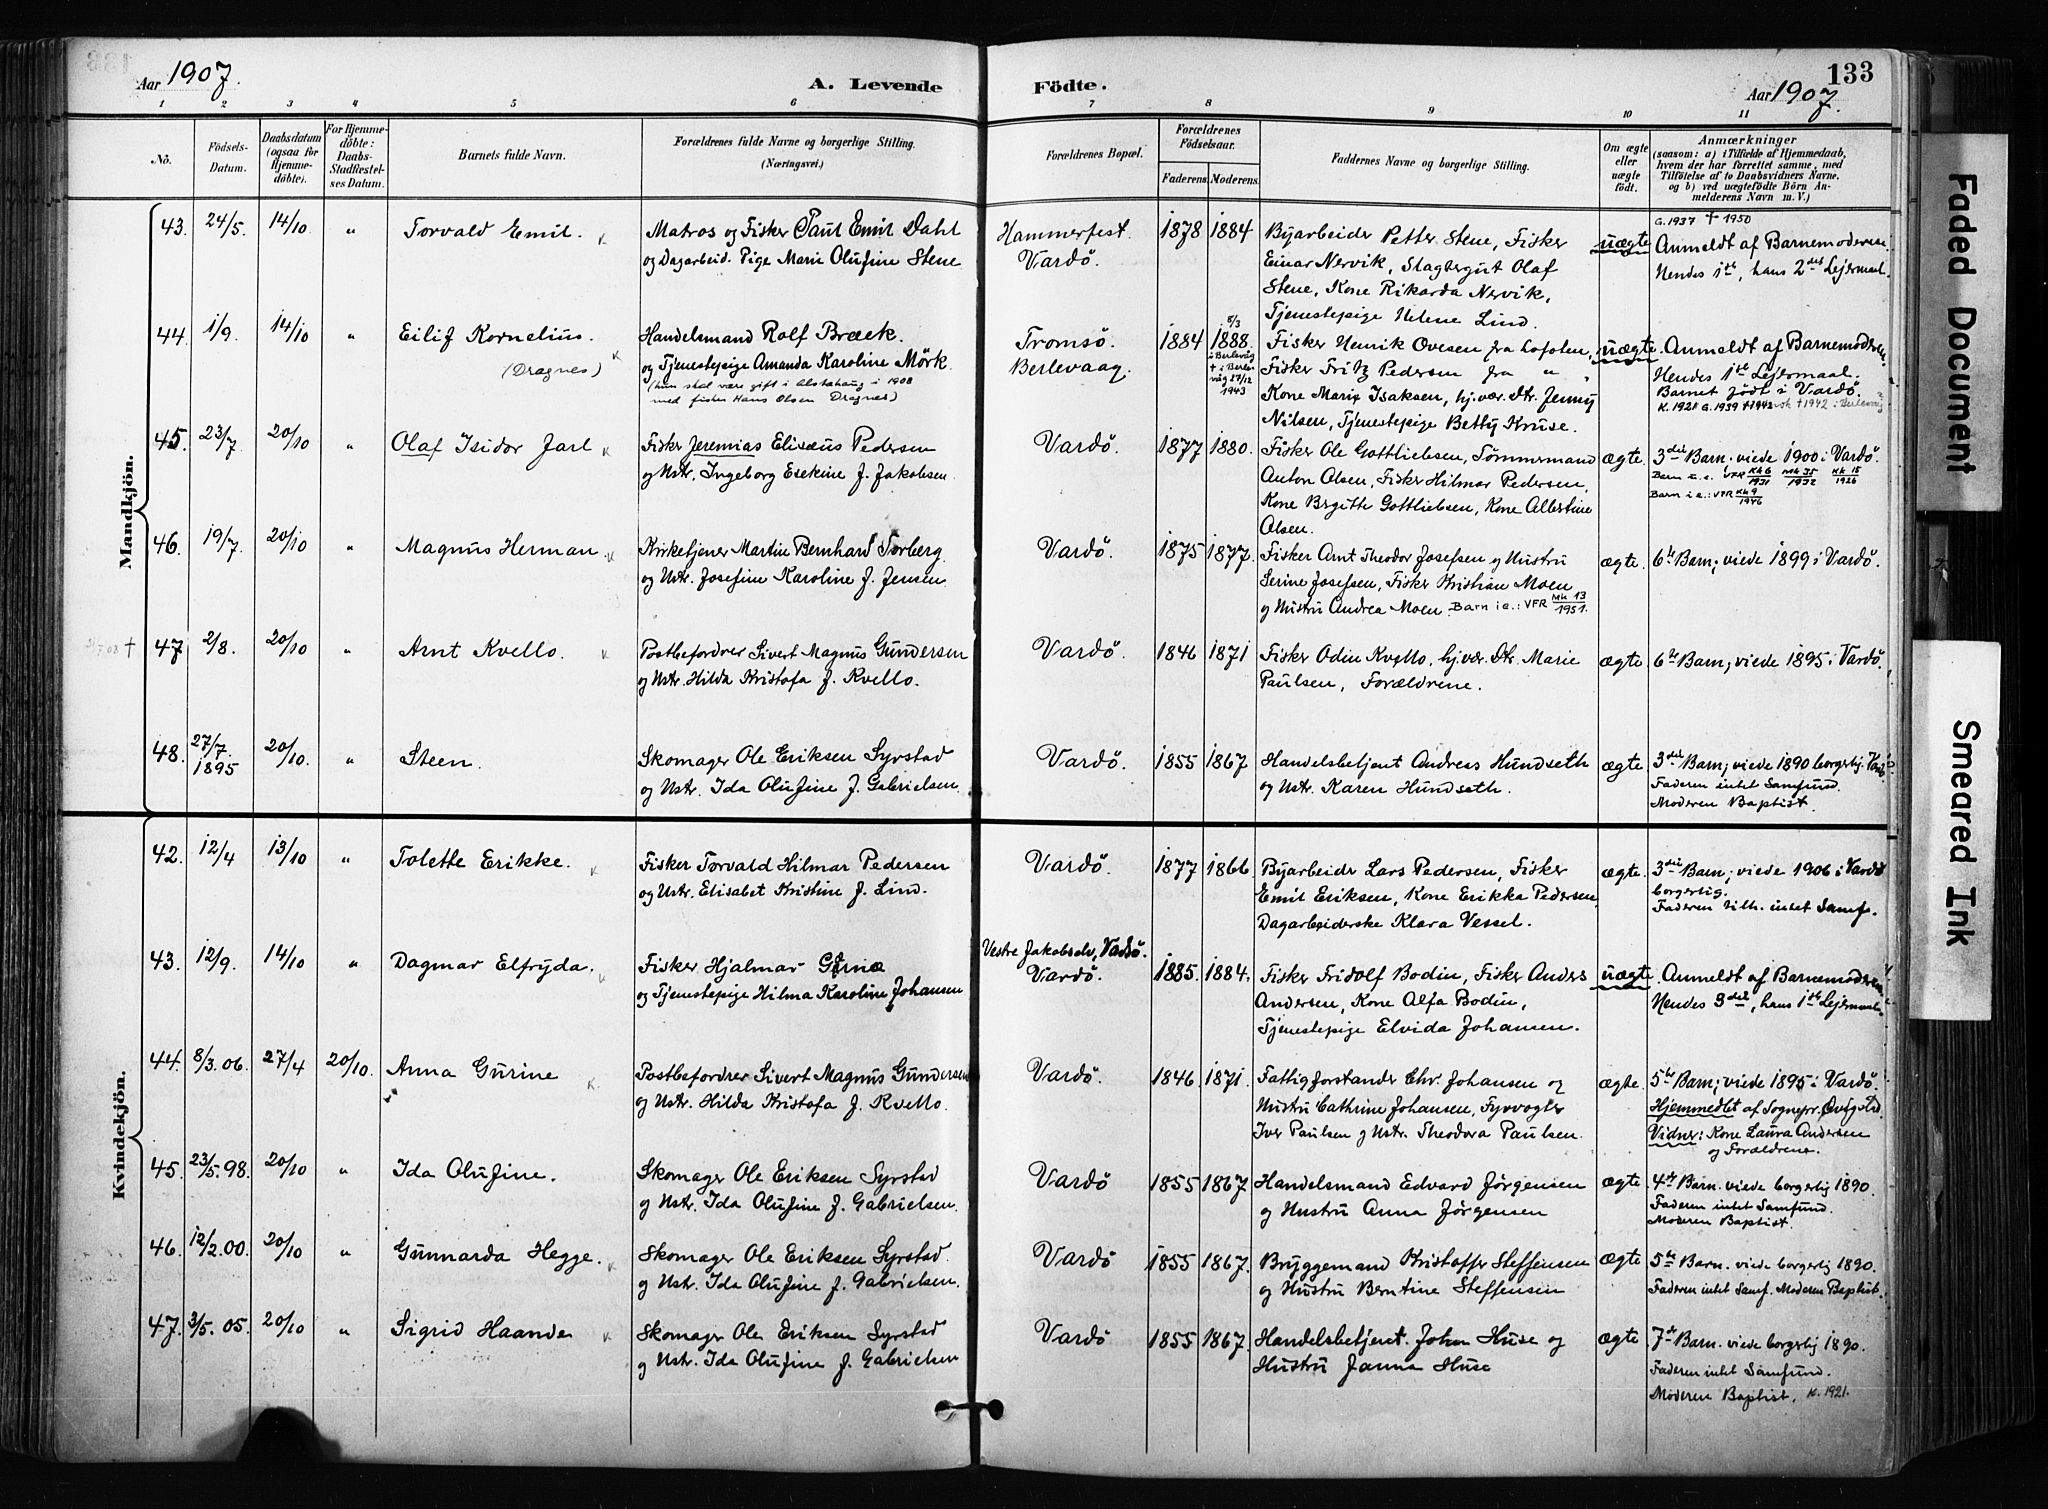 Aar 1907.
A. Levende
Födte.
133
Aar 1907.
1 2 3 4 5 6 7 8 9 10 11
No.
Födsels-
Datum.
Daabsdatum
(ogsaa for
Hjemme-
döbte).
For Hjemme-
döbte:
Daabs-
Stadfæstel-
ses Datum.
Barnets fulde Navn.
Forældrenes fulde Navne og borgerlige Stilling.
(Næringsvei.)
Forældrenes Bopæl.
Forældrenes
Födselsaar.
Faderens. Moderens.
Faddernes Navne og borgerlige Stilling.
Om ægte
eller
uægte
födt.
Anmærkninger
(saasom: a) i Tilfælde af Hjemmedaab,
hvem der har forrettet samme, med
Tilföielse af to Daabsvidners Navne,
og b) ved uægtefödte Börn An-
melderens Navn m. V.)
Mandkjön.
43. 24/5. 14/10 " Torvald Emil.
Matros og Fisker Paul Emil Dahl
og Dagarbeid. Pige Marie Olufine Stene
Hammerfest.
Vardö.
1878 1884
Byarbeider Petter Stene, Fisker
Einar Nervik, Slagtergut Olaf
Stene, Kone Rikarda Nervik,
Tjenestepige Helene Lind.
uægte
G. 1937 † 1950
Anmeldt af Barnemoderen.
Hendes 1ste, hans 2det Lejermaal.
44. 1/9. 14/10 " Eilif Kornelius.
(Dragnes)
Handelsmand Rolf Bræck.
og Tjenestepige Amanda Karoline Mörk.
(hun skal være gift i Alstahaug i 1908
med fisker Hans Olsen Dragnes)
Tromsö.
Berlevaag.
1884 8/3 1888.
i Berlevåg
† i Berle-
våg 27/12
1943
Fisker Henrik Ovesen fra Lofoten,
Fisker Fritz Pedersen fra " ,
Kone Marie Isaksen, hj.vær. Dtr. Jenny
Nilsen, Tjenestepige Betty Kruse.
uægte.
Anmeldt af Barnemoderen.
Hendes 1ste Lejermaal.
Barnet födt i Vardö.
K. 1921 G. 1939 † 1942
45. 23/7. 20/10 " Olaf Isidor Jarl
Fisker Jeremias Elisæus Pedersen
og Hstr. Ingeborg Esekine f. Jakobsen.
Vardö.
1877 1880.
Fisker Ole Gottliebsen, Tømmermand
Anton Olsen, Fisker Hilmar Pedersen,
Kone Brgitte Gottliebsen, Kone Albertine
Olsen.
ægte.
3die Barn. viede 1900 i Vardö.
Barn i e.: VFR Kk 6 1931 Mk 35 1932 Kk 15 1926
Barn i e.: VFR Kk 9 1946
46. 19/7. 20/10 " Magnus Herman.
Kirketjener Martin Bernhard Torberg.
og Hstr. Josefine Karoline f. Jensen.
Vardö.
1875 1877.
Fisker Arnt Theodor Josefsen og Hustru
Serine Josefsen, Fisker Kristian Moen
og Hustru Andrea Moen. Barn i e.: VFR Mk 13 1951.
ægte.
6te Barn; viede 1899 i Vardö.
† 47 2/8. 20/10 " Arnt Kvello.
Postbefordrer Sivert Magnus Gundersen
og Hstr. Hilda Kristofa f. Kvello.
Vardö.
1846 1871
Fisker Odin Kvello, hj.vær. Dtr. Marie
Paulsen, Forældrene.
ægte
6te Barn; viede 1895 i Vardö.
48. 27/7. 1895 20/10. " Steen.
Skomager Ole Eriksen Syrstad
og Hstr. Ida Olufine f. Gabrielsen.
Vardö.
1855 1867
Handelsbetjent Andreas Hundseth
og Hstr. Karen Hundseth.
ægte
3die Barn; viede 1890 borgerlig. Vardö.
Faderen intet Samfund.
Moderen Baptist.
Kvindekjön.
42. 12/4 13/10 " Tolette Erikke.
Fisker Torvald Hilmar Pedersen
og Hstr. Elisabet Kristine f. Lind.
Vardö.
1877 1866
Byarbeider Lars Pedersen, Fisker
Emil Eriksen, Kone Erikka Pedersen,
Dagarbeiderske Klara Vessel.
ægte.
3die Barn; viede 1906 i Vardö
borgerlig.
Faderen tilh. intet Samf.
43. 12/9. 14/10 " Dagmar Elfryda.
Fisker Hjalmar
og Tjenestepige Hilma Karoline Johansen
Vestre Jakobselv, Vadsö.
Vardö.
1885. 1884.
Fisker Fridolf Bodin, Fisker Anders
Andersen, Kone Alfa Bodin,
Tjenestepige Elvida Johansen.
uægte
Anmeldt af Barnemoderen.
Hendes 3die, hans 1ste Lejermaal.
44. 8/3. 06. 27/4 20/10. Anna Gurine
Postbefordrer Sivert Magnus Gundersen
og Hstr. Hilda Kristofa f. Kvello.
Vardö.
1846. 1871.
Fattigforstander Chr. Johansen og
Hustru Cathrine Johansen, Fyrvogter
Iver Paulsen og Hstr. Theodora Paulsen.
ægte.
5te Barn; viede 1895 i Vardö.
Hjemmedøbt af Sognepr. Qvigstad.
Vidner: Kone Laura Andersen
og Forældrene.
45. 23/5. 98. 20/10 " Ida Olufine.
Skomager Ole Eriksen Syrstad
og Hstr. Ida Olufine f. Gabrielsen.
Vardö
1855 1867
Handelsmand Edvard Jørgensen
og Hustru Anna Jørgensen
ægte
4de Barn. viede borgerlig 1890.
Faderen intet Samfund.
Moderen Baptist.
46. 12/2. 00. 20/10 " Gunnarda Hegge.
Skomager Ole Eriksen Syrstad
og Hstr. Ida Olufine f. Gabrielsen.
Vardö
1855 1867.
Bryggemand Kristoffer Steffensen
og Hustru Berntine Steffensen
ægte
5te Barn. viede borgerlig 1890.
Faderen intet Samf. Moderen Baptist.
47. 3/5. 05. 20/10 " Sigrid Haande
Skomager Ole Eriksen Syrstad
og Hstr. Ida Olufine f. Gabrielsen
Vardö
1855 1867.
Handelsbetjent. Johan Huse og
Hustru Janna Huse
ægte
7de Barn. viede borgerlig 1890.
Faderen intet Samfund.
Moderen Baptist. K. 1921.
Faded Document
Smeared Ink